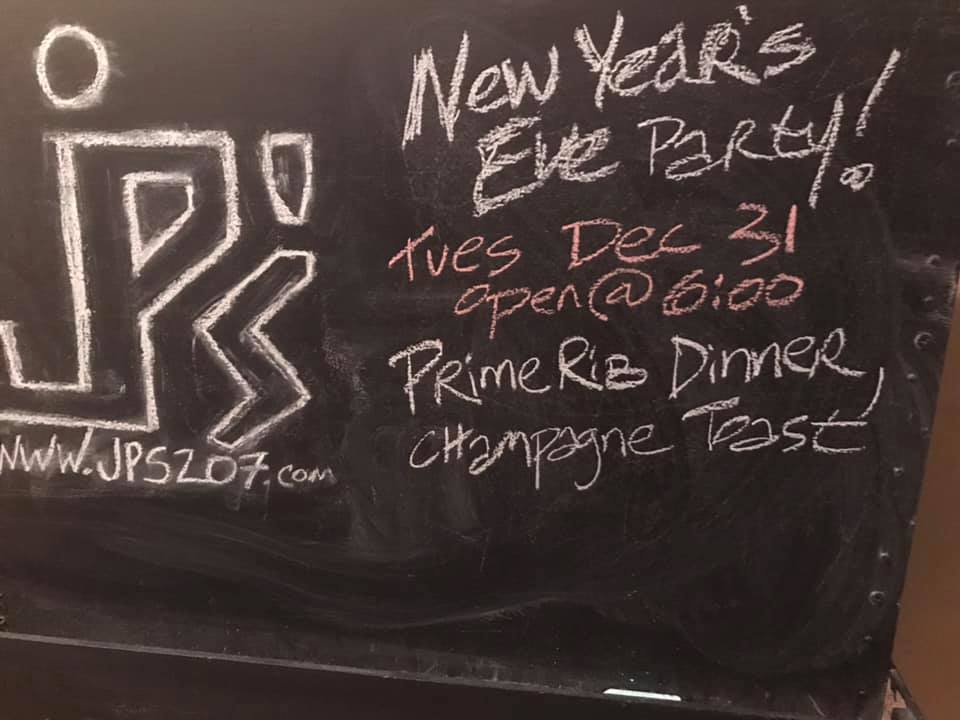 JP's
www.JPS207.com
New Year's
Eve Party!
Tues Dec 31
open @ 6:00
Prime Rib Dinner,
Champagne Toast